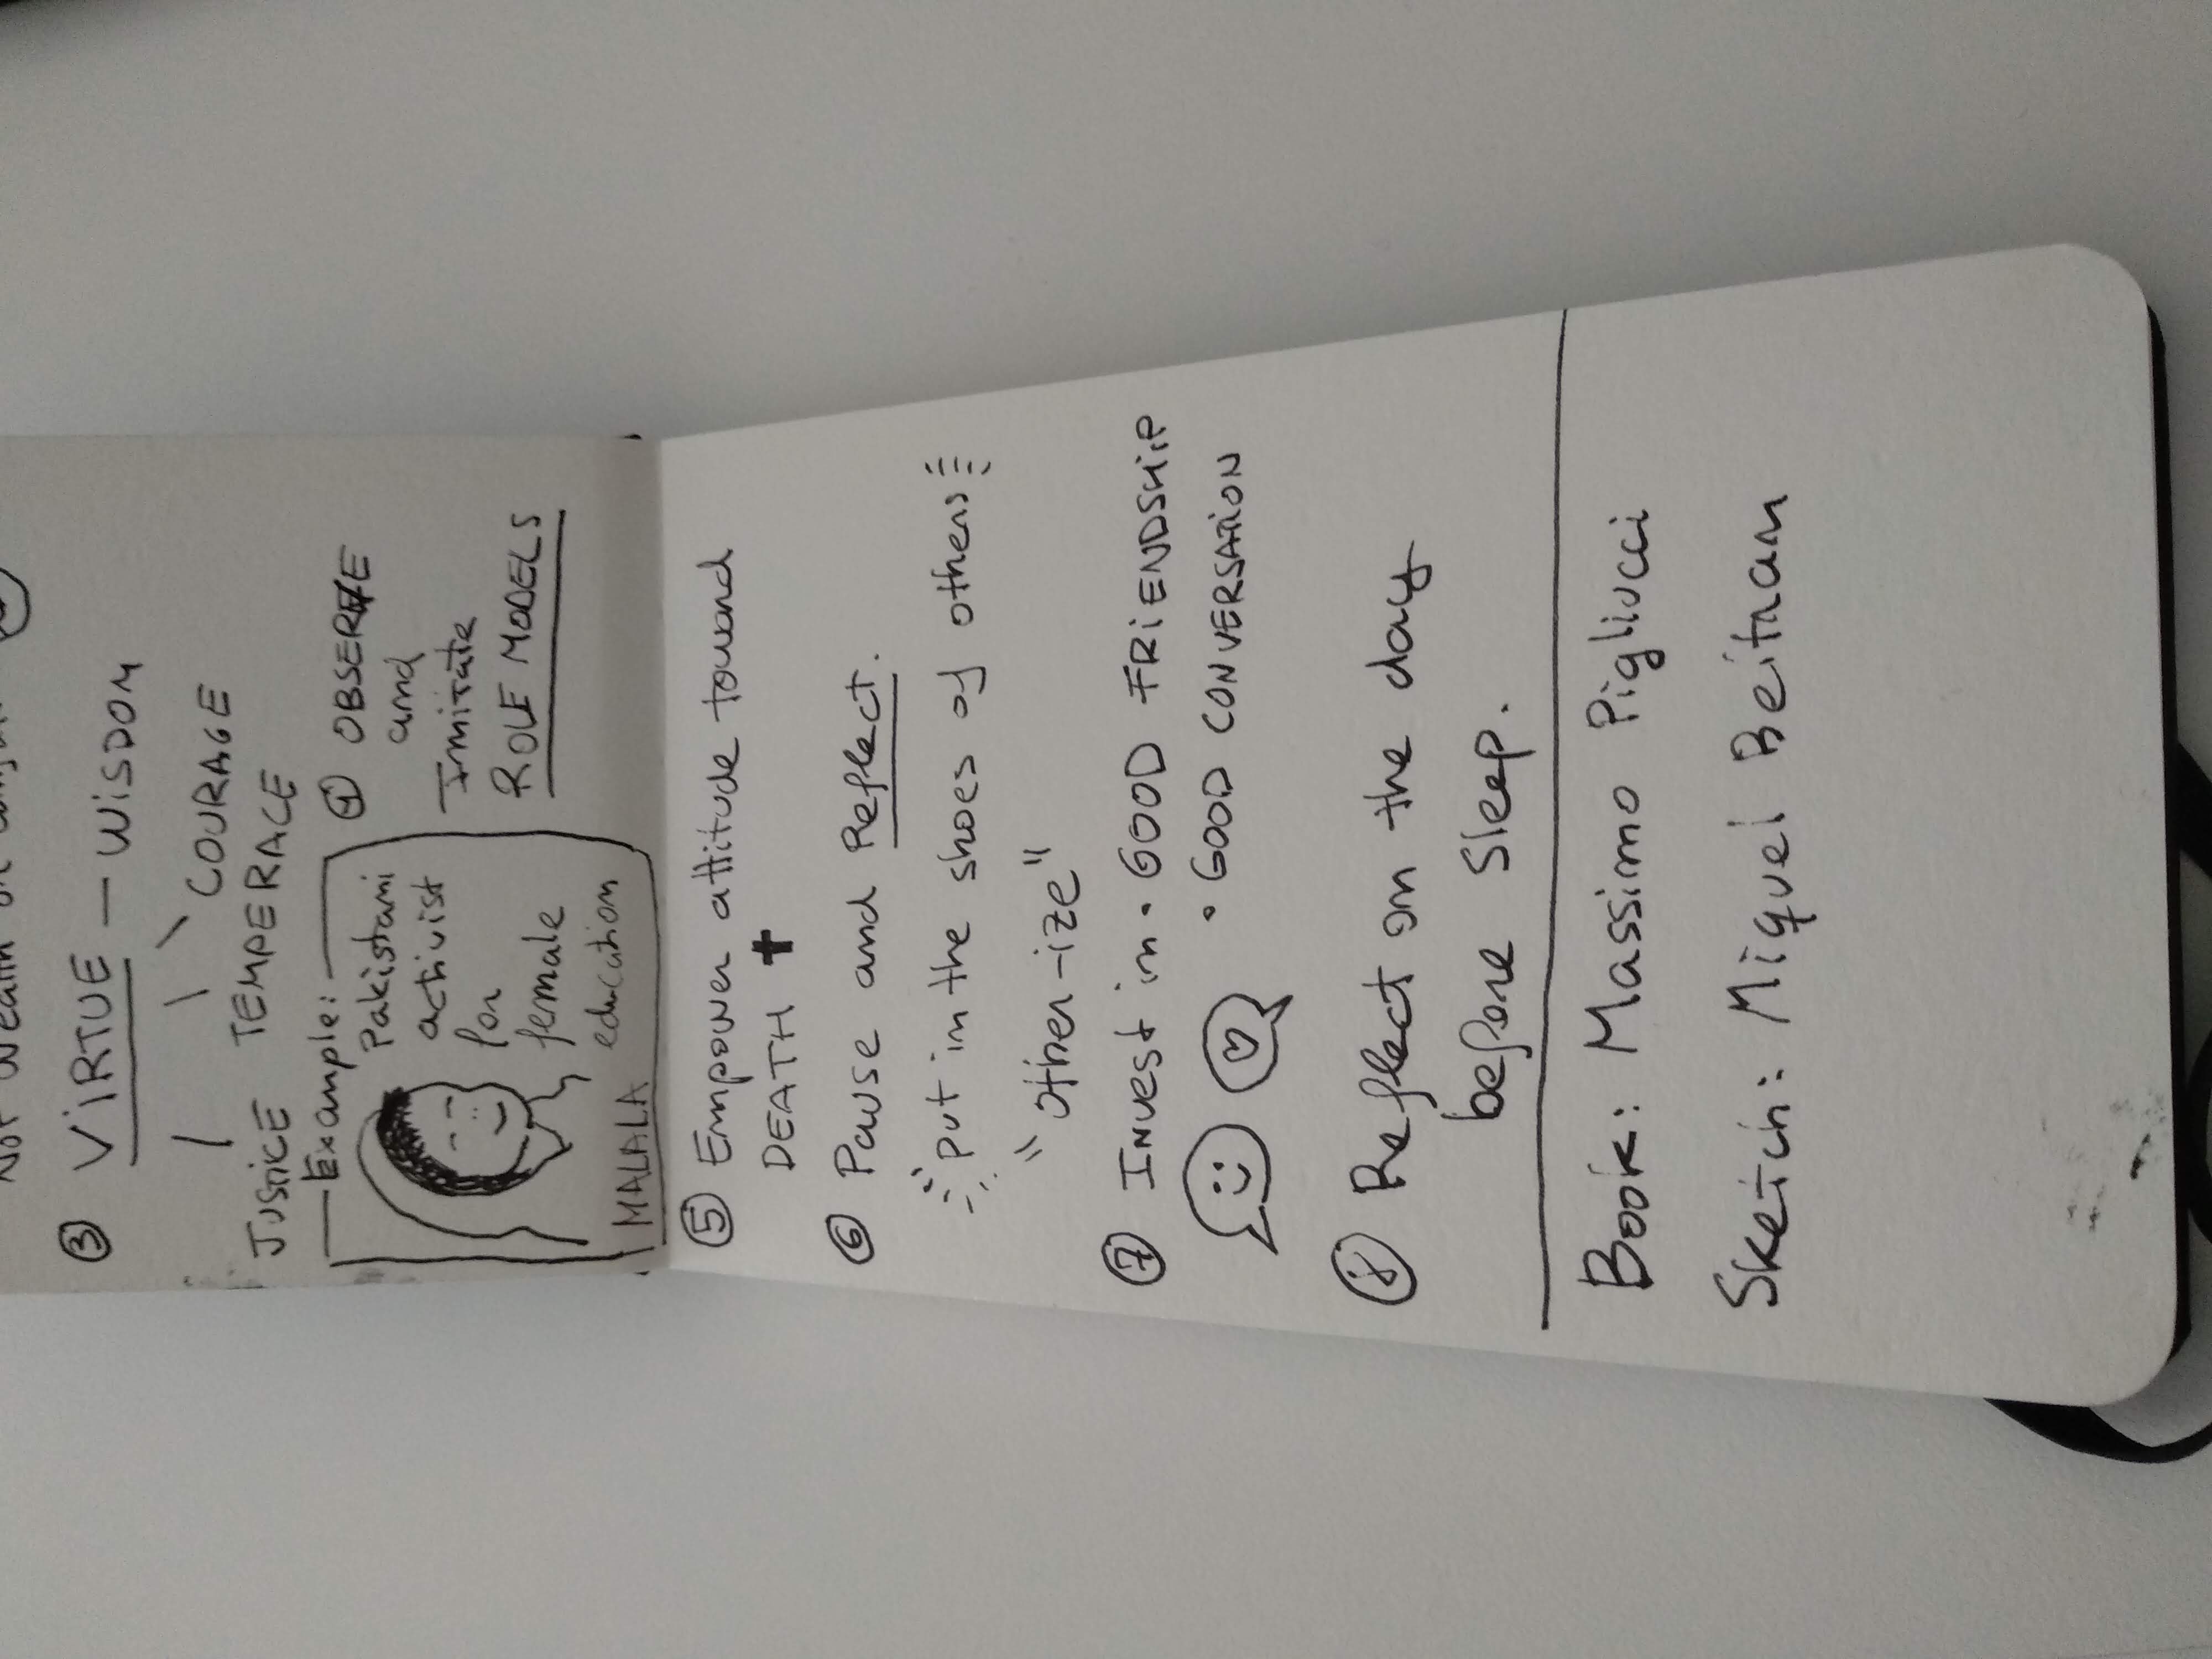 Not Wealth or
③ ViRTUE — WiSDOM
COURAGE
JUSTiCE TEMPERACE
Example:
Pakistani
activist
for
female
education
MALALA
④ OBSERVE
and
Imitate
ROLE MODELS
⑤ Empower attitude toward
DEATH ✝
⑥ Pause and Reflect.
"put in the shoes of others
"other-ize"
⑦ Invest in • GOOD FRiENDSHiP
• GOOD CONVERSATiON
⑧ Reflect on the day
before Sleep.
Book: Massimo Pigliucci
Sketch: Miquel Beltran